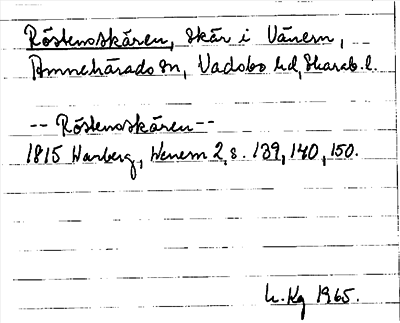 Röstensskären, skär i Vänern,
Amnehärads sn, Vadsbo hd, Skarab. l.
-- Röstensskären --
1815 Warberg, Wenern 2, s. 139, 140, 150.
L. Kg 1965.